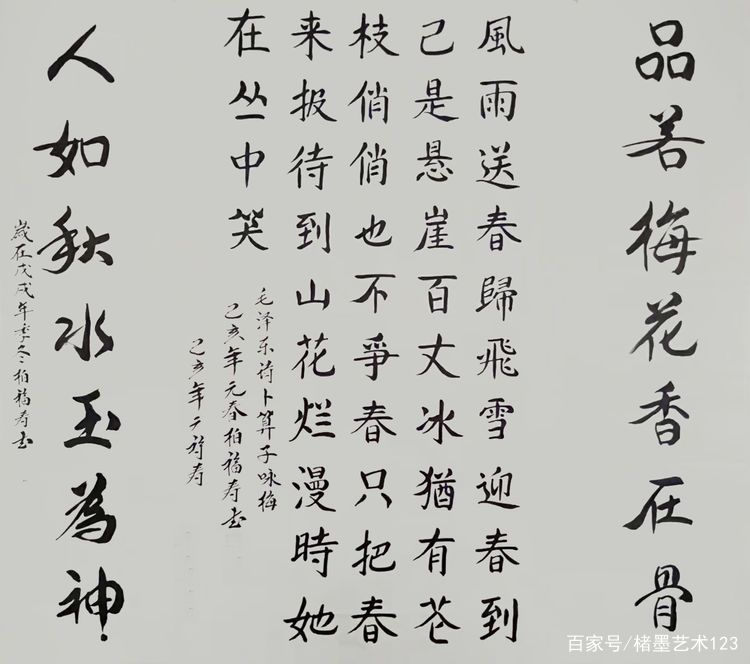 品若梅花香在骨
風雨送春歸飛雪迎春到
己是悬崖百丈冰猶有花
枝俏俏也不爭春只把春
来报待到山花烂漫時她
在丛中笑
毛泽东诗卜算子咏梅
己亥年元春柏福寿书
己亥年寿
人如秋水玉為神
歲在戊戌年季冬柏福寿书
百家号/楮墨艺术123